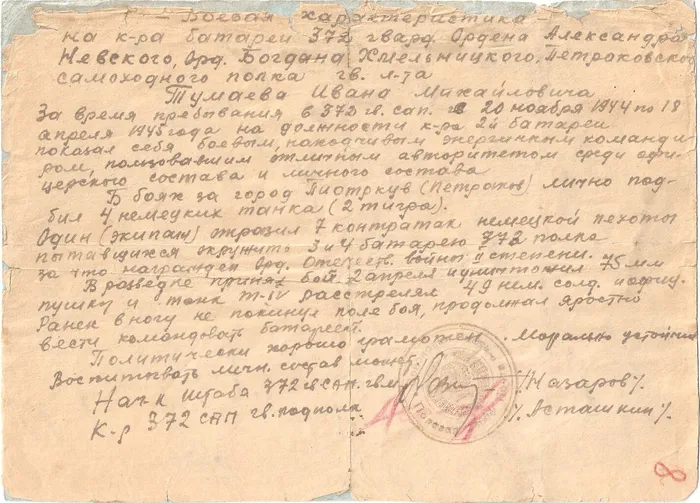 Боевая характеристика
на к-ра батареи 372 гвард. Ордена Александра
Невского, Орд. Богдана Хмельницкого, Петроковского
самоходного полка гв. л-та
Тумаева Ивана Михайловича
За время пребывания в 372 гв. сап. с 20 ноября 1944 по 18
апреля 1945 года на должности к-ра 2й батареи
показал себя боевым, находчивым энергичным команди
ром, пользовавшим отличным авторитетом среди офи-
церского состава и личного состава
В боях за город Пиотркув (Петроков) лично под-
бил 4 немецких танка (2 тигра).
Один (экипаж) отразил 7 контратак немецкой пехоты
пытавшихся окружить 3 и 4 батарею 372 полка
за что награжден Орд. Отечеств. войны II степени.
В разведке принял бой 2 апреля и уничтожил 75 мм
пушку и танк Т-IV расстрелял 49 нем. солд. и офиц.
Ранен в ногу не покинул поле боя, продолжал яростно
вести командовать батареей.
Политически хорошо грамотен. Морально устойчив
Воспитывать личн. состав может.
Нач-к Штаба 372 гв САП гв. м-р /Назаров/.
К-р 372 САП гв. подполк. /Асташкин/.
8